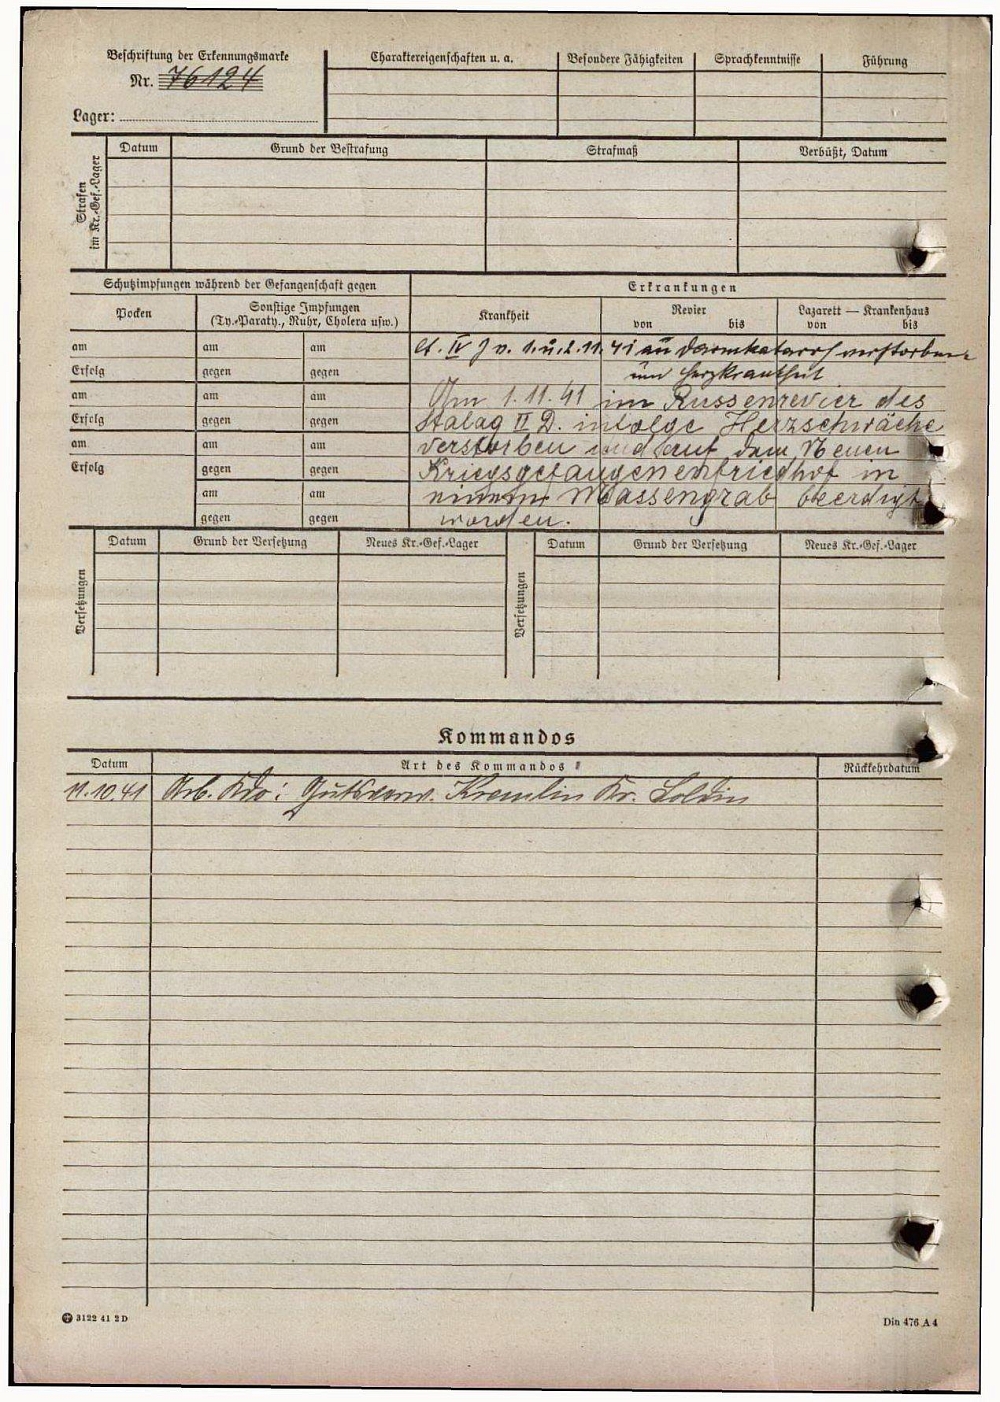 Beschriftung der Erkennungsmarke
Nr. 76124
Lager:
Charaktereigenschaften u. a. Besondere Fähigkeiten Sprachkenntnisse Führung
Strafen
im Kr.-Gef.-Lager
Datum Grund der Bestrafung Strafmaß Verbüßt, Datum
Schutzimpfungen während der Gefangenschaft gegen
Erkrankungen
Pocken
Sonstige Impfungen
(Ty.-Paraty., Ruhr, Cholera usw.)
Krankheit
Revier
von bis
Lazarett — Krankenhaus
von bis
am am am
Erfolg gegen gegen
am am am
Erfolg gegen gegen
am am am
Erfolg gegen gegen
am am
gegen gegen
lt. IV J v. 1. u. 2.11.41 an Darmkatarrh verstorben
Herzkrankheit
Am 1.11.41 im Russenrevier des
Stalag II D. infolge Herzschwäche
verstorben und auf dem Neuen
Kriegsgefangenenfriedhof in
einem Massengrab beerdigt
worden.
Versetzungen
Datum Grund der Versetzung Neues Kr.-Gef.-Lager
Versetzungen
Datum Grund der Versetzung Neues Kr.-Gef.-Lager
Kommandos
Datum Art des Kommandos Rückkehrdatum
11.10.41 Arb. Kdo: Gutsverw. Kremlin Kr. Soldin
3122 41 2 D
Din 476 A 4